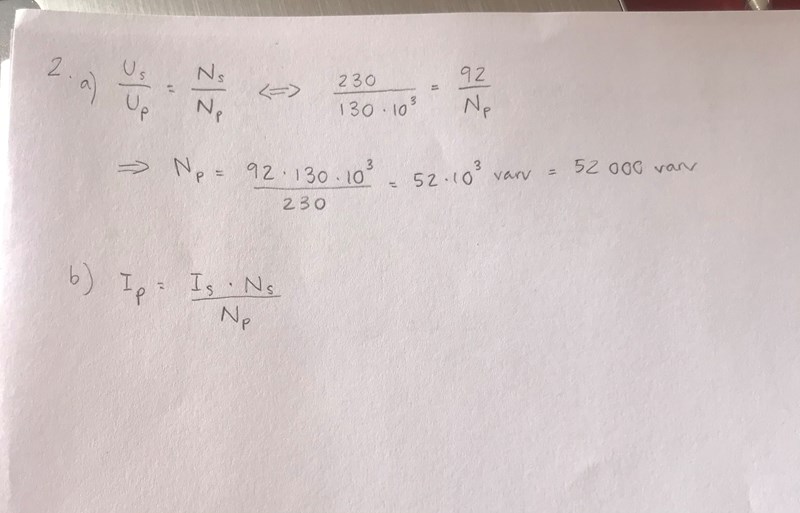 2. a) Us/Up = Ns/Np <=> 230/130 · 10³ = 92/Np
=> Np = 92 · 130 · 10³/230 = 52 · 10³ varv = 52 000 varv
b) Ip = Is · Ns/Np